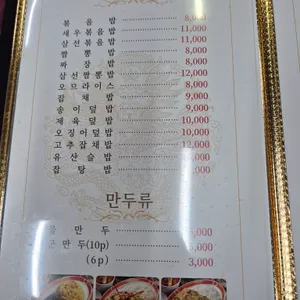 볶음밥 8,000
새우볶음밥 11,000
삼선볶음밥 11,000
짬뽕밥 8,000
짜장밥 8,000
삼선짬뽕밥 12,000
오므라이스 8,000
잡채밥 9,000
송이덮밥 9,000
제육덮밥 10,000
오징어덮밥 10,000
고추잡채밥 12,000
유산슬밥
잡탕밥
만두류
물만두
군만두(10p)
(6p) 3,000